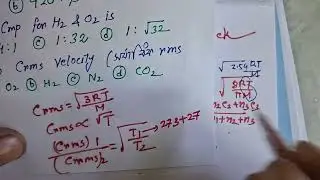 Cmp for H2 & O2 is
4:1 ⓒ 1:32 ⓓ 1:√32
Crms velocity ( rms
O2 ⓑ H2 ⓒ N2 ⓓ CO2
Crms = √3RT/M
Crms ∝ √T
(Crms)1/(Crms)2 = √T1/T2 → 273+27
√2.54RT/M
√8RT/πM
n2C2+n3C3
n1+n2+n3